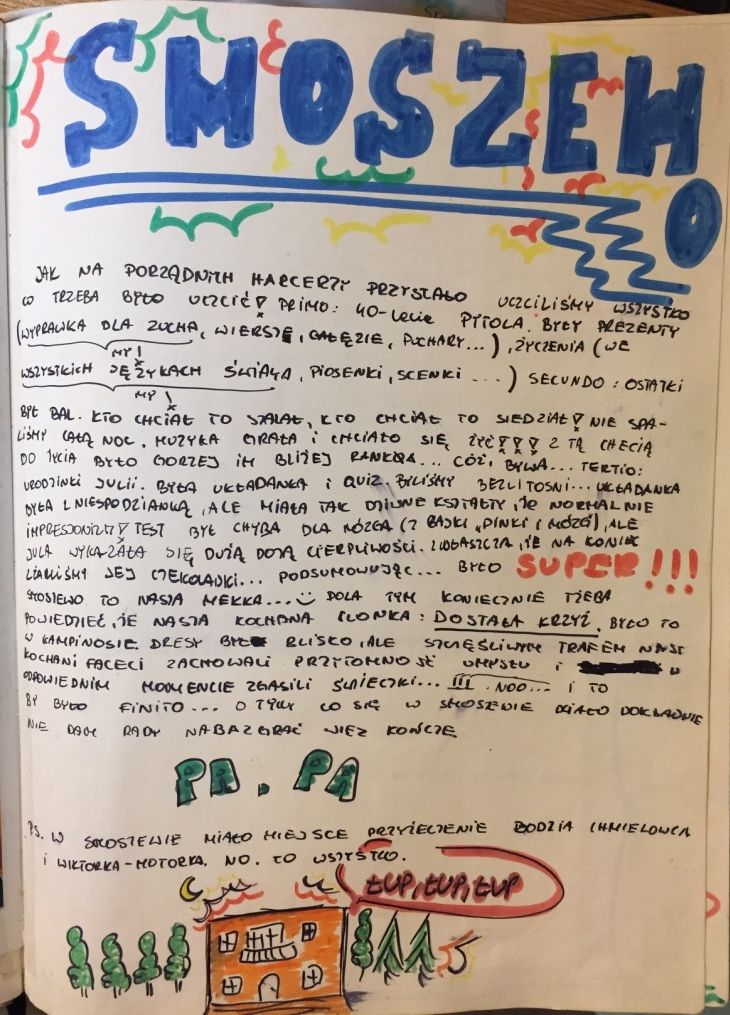 SMOSZEWO
JAK NA PORZĄDNYCH HARCERZY PRZYSTAŁO UCZCILIŚMY WSZYSTKO
CO TRZEBA BYŁO UCZCIĆ! PRIMO: 40-lecie PYTOLA. BYŁY PREZENTY
(WYPRAWKA DLA ZUCHA, WIERSZE, GAŁĘZIE, PUCHARY...), ŻYCZENIA (WE
MY!
WSZYSTKICH JĘZYKACH ŚWIATA, PIOSENKI, SCENKI ...) SECUNDO: OSTATKI
MY!
BYŁ BAL. KTO CHCIAŁ TO SZALAŁ, KTO CHCIAŁ TO SIEDZIAŁ! NIE SPA-
LIŚMY CAŁĄ NOC. MUZYKA GRAŁA I CHCIAŁO SIĘ ŻYĆ!!! Z TĄ CHĘCIĄ
DO ŻYCIA BYŁO GORZEJ IM BLIŻEJ RANKA... CÓŻ, BYWA... TERTIO:
URODZINKI JULII. BYŁA UKŁADANKA I QUIZ. BYLIŚMY BEZLITOŚNI... UKŁADANKA
BYŁA Z NIESPODZIANKĄ, ALE MIAŁA TAK DZIWNE KSZTAŁTY, ŻE NORMALNIE
TEST BYŁ CHYBA DLA MÓZGA (Z BAJKI „PINKI I MÓZG), ALE
JULA WYKAZAŁA SIĘ DUŻĄ DOZĄ CIERPLIWOŚCI. ZWŁASZCZA, ŻE NA KONIEC
JEJ CZEKOLADKI... PODSUMOWUJĄC... BYŁO SUPER!!!
SMOSZEWO TO NASZA MEKKA... POZA TYM KONIECZNIE TRZEBA
POWIEDZIEĆ, ŻE NASZA KOCHANA CLONKA: DOSTAŁA KRZYŻ. BYŁO TO
W KAMPINOSIE. DRESY BYŁY BLISKO, ALE SZCZĘŚLIWYM TRAFEM NASI
KOCHANI FACECI ZACHOWALI PRZYTOMNOŚĆ UMYSŁU I W
ODPOWIEDNIM MOMENCIE ZGASILI ŚWIECZKI... !!! NOO... I TO
BY BYŁO FINITO... O TYM CO SIĘ W SMOSZEWIE DZIAŁO DOKŁADNIE
NIE DAM RADY NABAZGRAĆ WIĘC KOŃCZĘ
PA, PA
PS. W SMOSZEWIE MIAŁO MIEJSCE PRZYRZECZENIE BODZIA CHMIELOWCA
I WIKTORKA-MOTORKA. NO. TO WSZYSTKO.
ŁUP, ŁUP, ŁUP